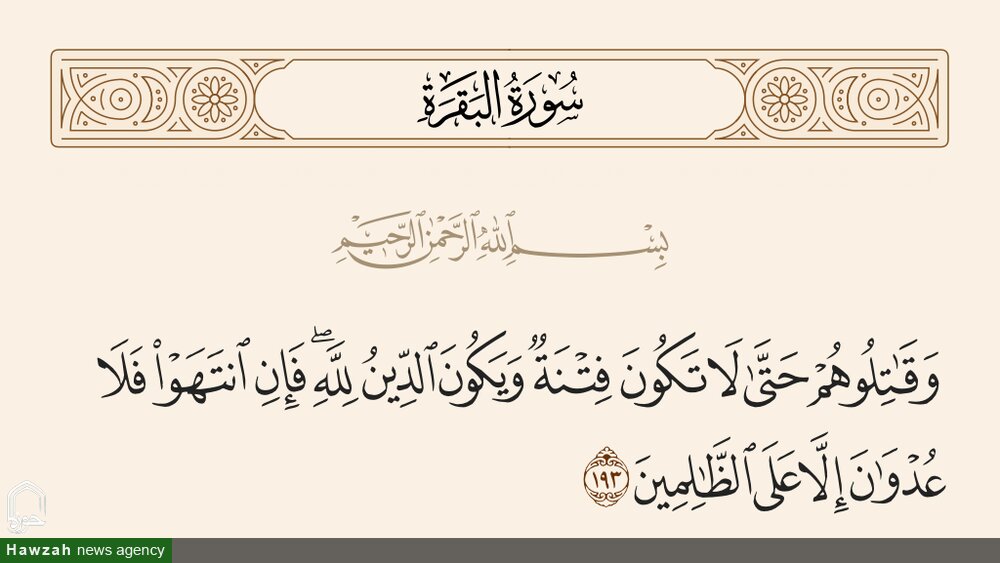 سُورَةُ البَقَرَةِ
بِسْمِ ٱللَّهِ ٱلرَّحْمَٰنِ ٱلرَّحِيمِ
وَقَٰتِلُوهُمْ حَتَّىٰ لَا تَكُونَ فِتْنَةٌ وَيَكُونَ ٱلدِّينُ لِلَّهِ ۖ فَإِنِ ٱنتَهَوْا۟ فَلَا
عُدْوَٰنَ إِلَّا عَلَى ٱلظَّٰلِمِينَ ١٩٣
حوزه
Hawzah news agency